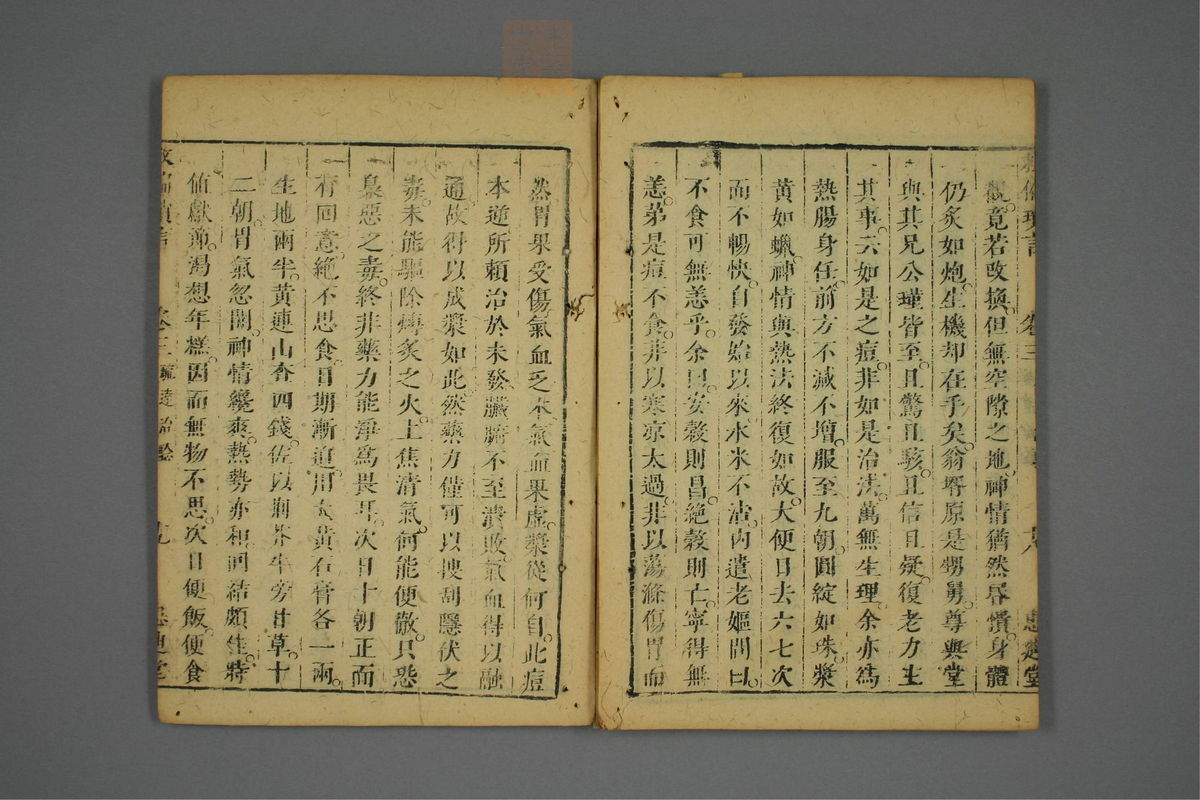 救偏瑣言 卷三 十八 惠迪堂
觀竟若改換但無空隙之地神情猶然昏憒身體
仍炙如炮生機却在乎矣翁壻原是甥舅尊與堂
與其兄公瑾皆至且驚且駭且信且疑復老力主
其事云如是之痘非如是治法萬無生理余亦為
熱腸身任前方不減不增服至九朝圓綻如珠漿
黃如蠟神情與熱法終復如故大便日去六七次
而不暢快自發始以來水米不沾內遣老嫗問曰
不食可無恙乎余曰安穀則昌絕穀則亡寧得無
恙弟是痘不食非以寒凉太過非以蕩滌傷胃而
然胃果受傷氣血乏本氣血果虛漿從何自此痘
本逆所賴治於未發臟腑不至潰敗氣血得以融
通故得以成漿如此然藥力僅可以搜刮隱伏之
毒未能驅除燔炙之火上焦清氣何能便散只恐
梟惡之毒終非藥力能淨為畏耳次日十朝正面
有回意絕不思食日期漸迫用大黃石膏各一兩
生地兩半黃連山查四錢佐以荊芥牛蒡甘草十
二朝胃氣忽開神情纔爽熱勢亦和回結頗佳時
值獻節渴想年糕因而無物不思次日便飯便食
救偏瑣言 卷三 疏達治驗 十九 惠迪堂